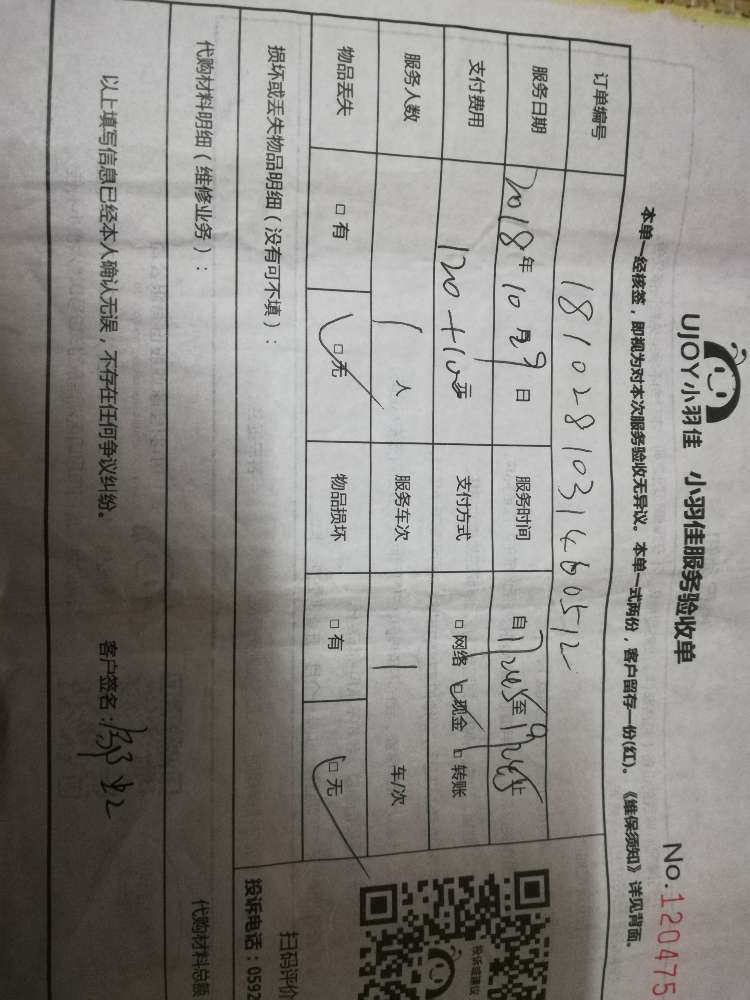 UJOY小羽佳 小羽佳服务验收单
No.120475
本单一经核签，即视为对本次服务验收无异议。本单一式两份，客户留存一份(红)。《维保须知》详见背面。
订单编号 1810281031460512
服务日期 2018年10月29日 服务时间 自17:45至19:45止
支付费用 120+10元 支付方式 □网络 □现金 □转账
服务人数 1人 服务车次 1 车/次
物品丢失 □有 □无 物品损坏 □有 □无
损坏或丢失物品明细（没有可不填）：
代购材料明细（维修业务）：
代购材料总额
以上填写信息已经本人确认无误，不存在任何争议纠纷。 客户签名：
投诉或建议
扫码评价
投诉电话：0592